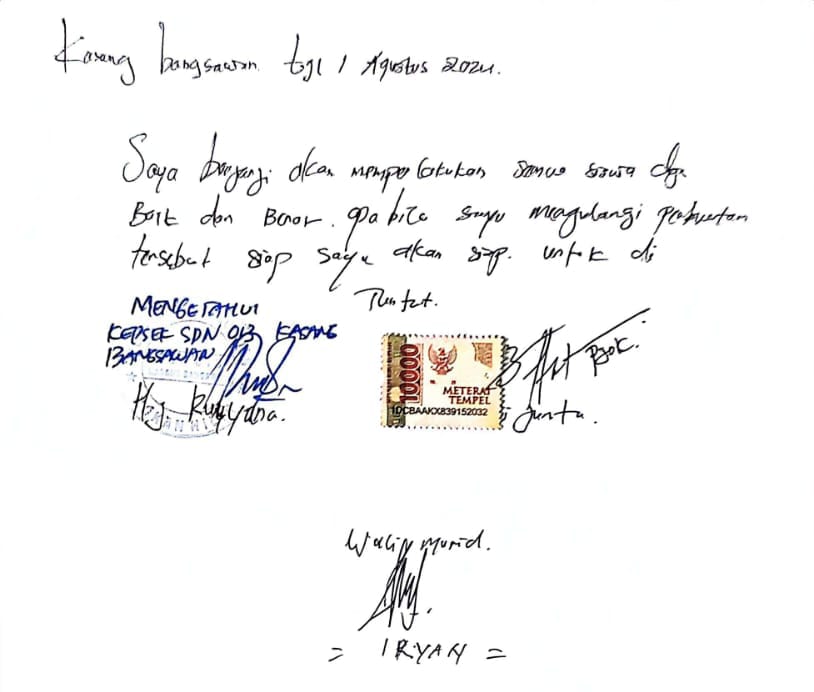 Kasang bangsawan tgl 1 Agustus 2024.
Saya berjanji akan memperlakukan semua siswa dgn
Baik dan Benar. apa bila saya megulangi perbuatan
tersebut siap saya akan siap. untuk di
Tuntut.
MENGETAHUI
KEPSEK SDN 013 KASANG
BANGSAWAN
Hj
10000
METERAI
TEMPEL
1DCBAAKX839152032
Wali murid.
= IRYAN =